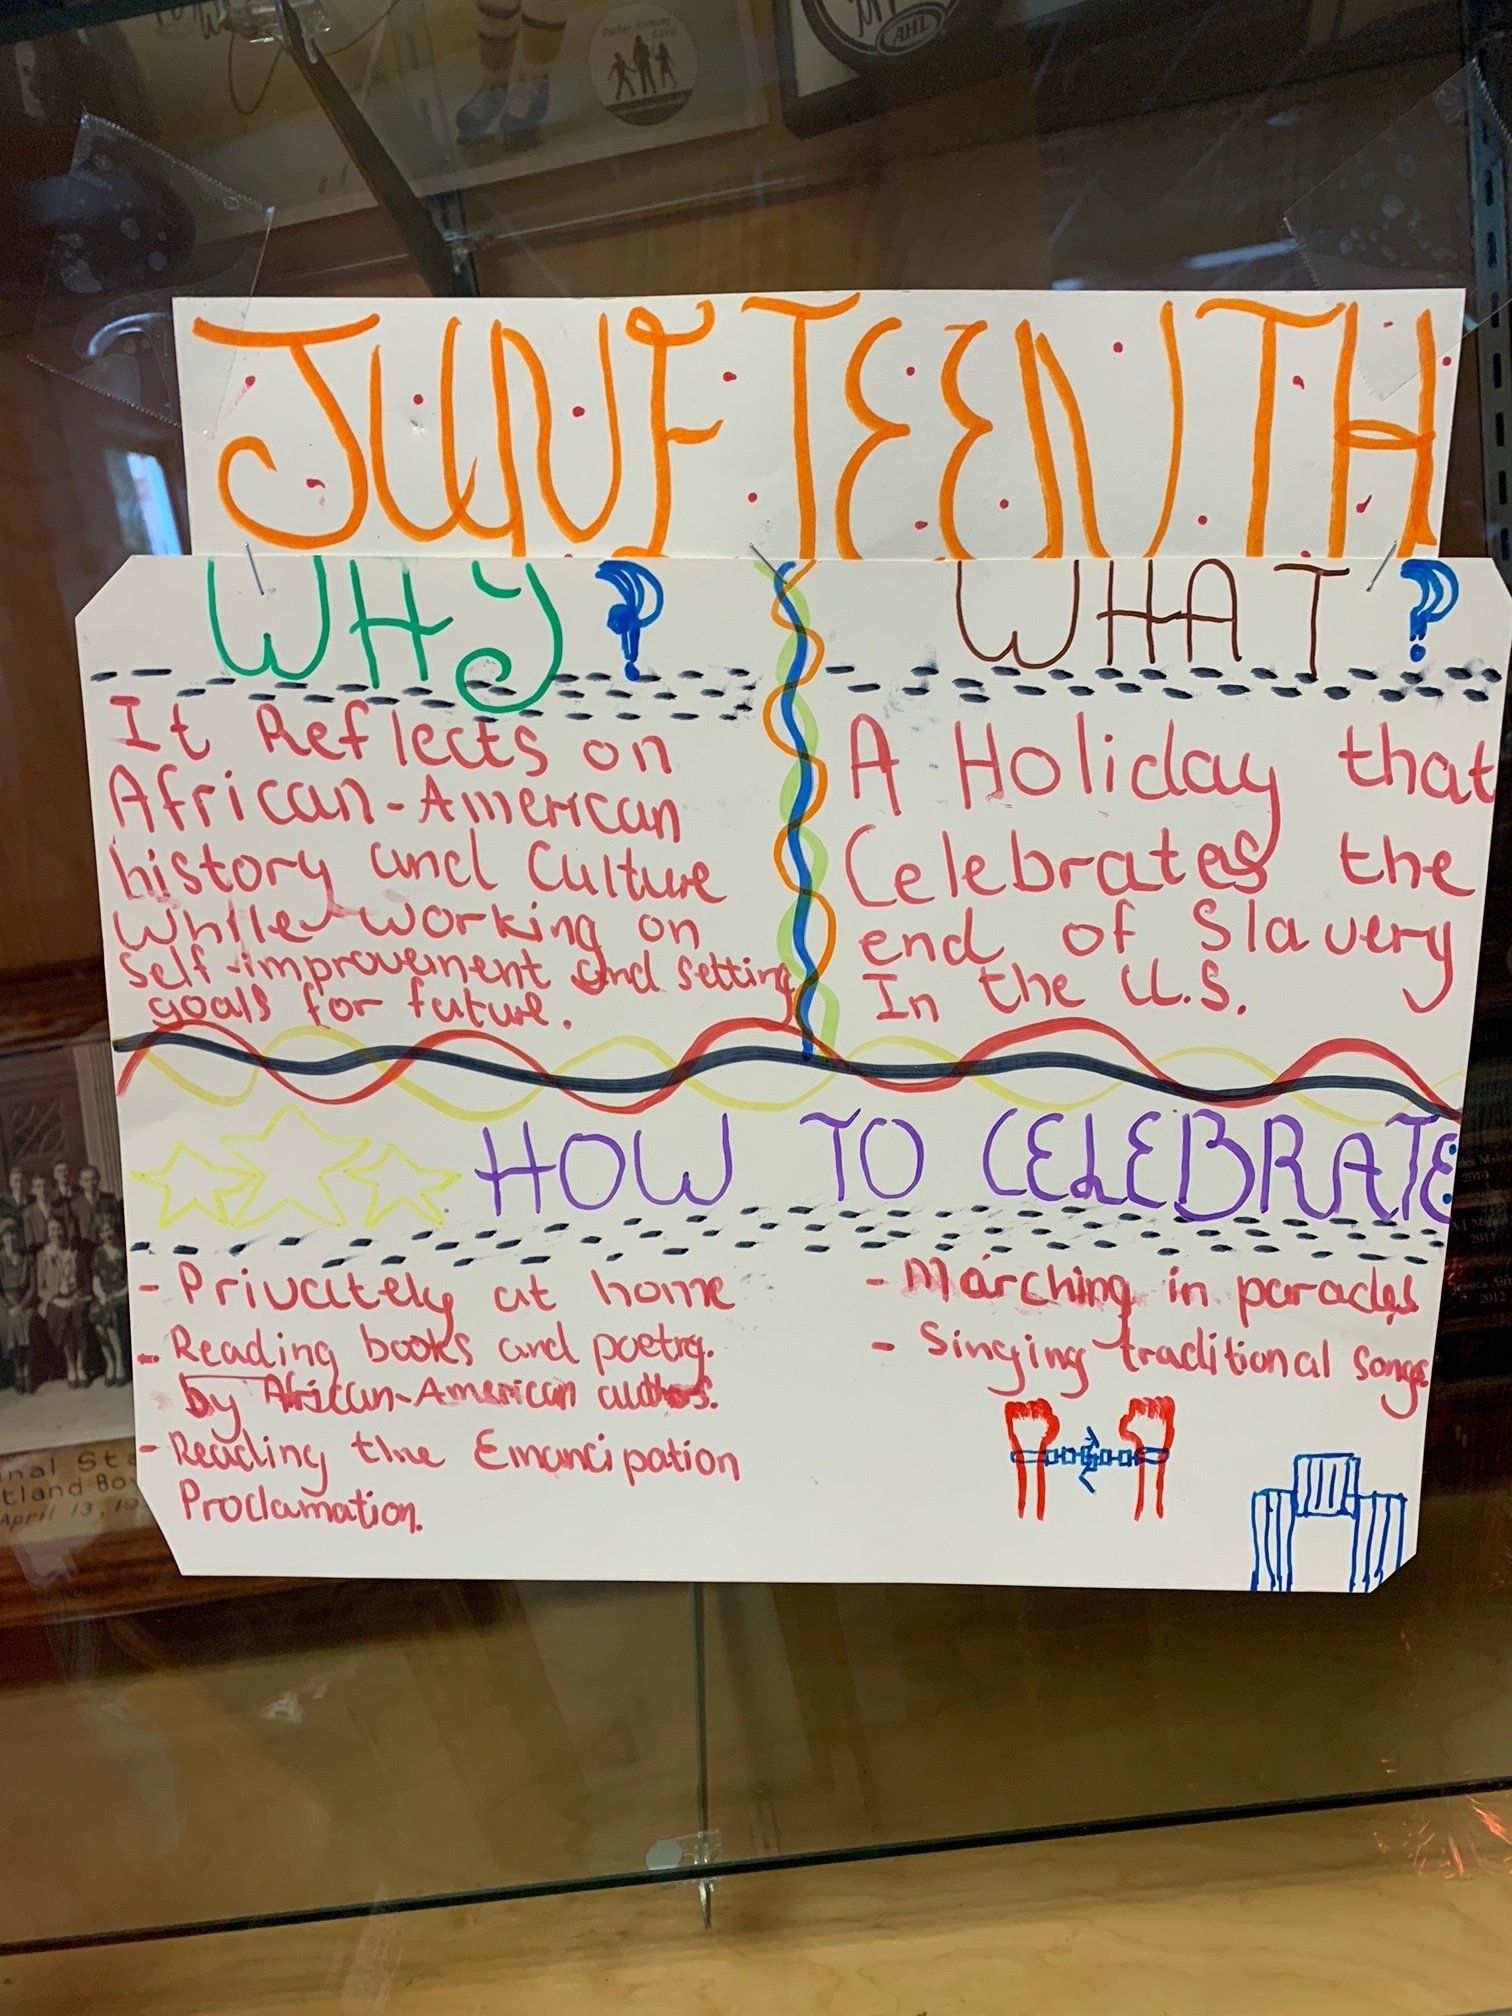 AHL
JUNETEENTH
WHY?
It Reflects on
African-American
history and Culture
While working on
Self-improvement and setting
goals for future.
WHAT?
A Holiday that
Celebrates the
end of Slavery
In the U.S.
HOW TO CELEBRATE
- Privately at home
- Reading books and poetry.
by African-American authors.
- Reading the Emancipation
Proclamation.
- Marching in parades
- Singing traditional songs
April 13, 19
2012